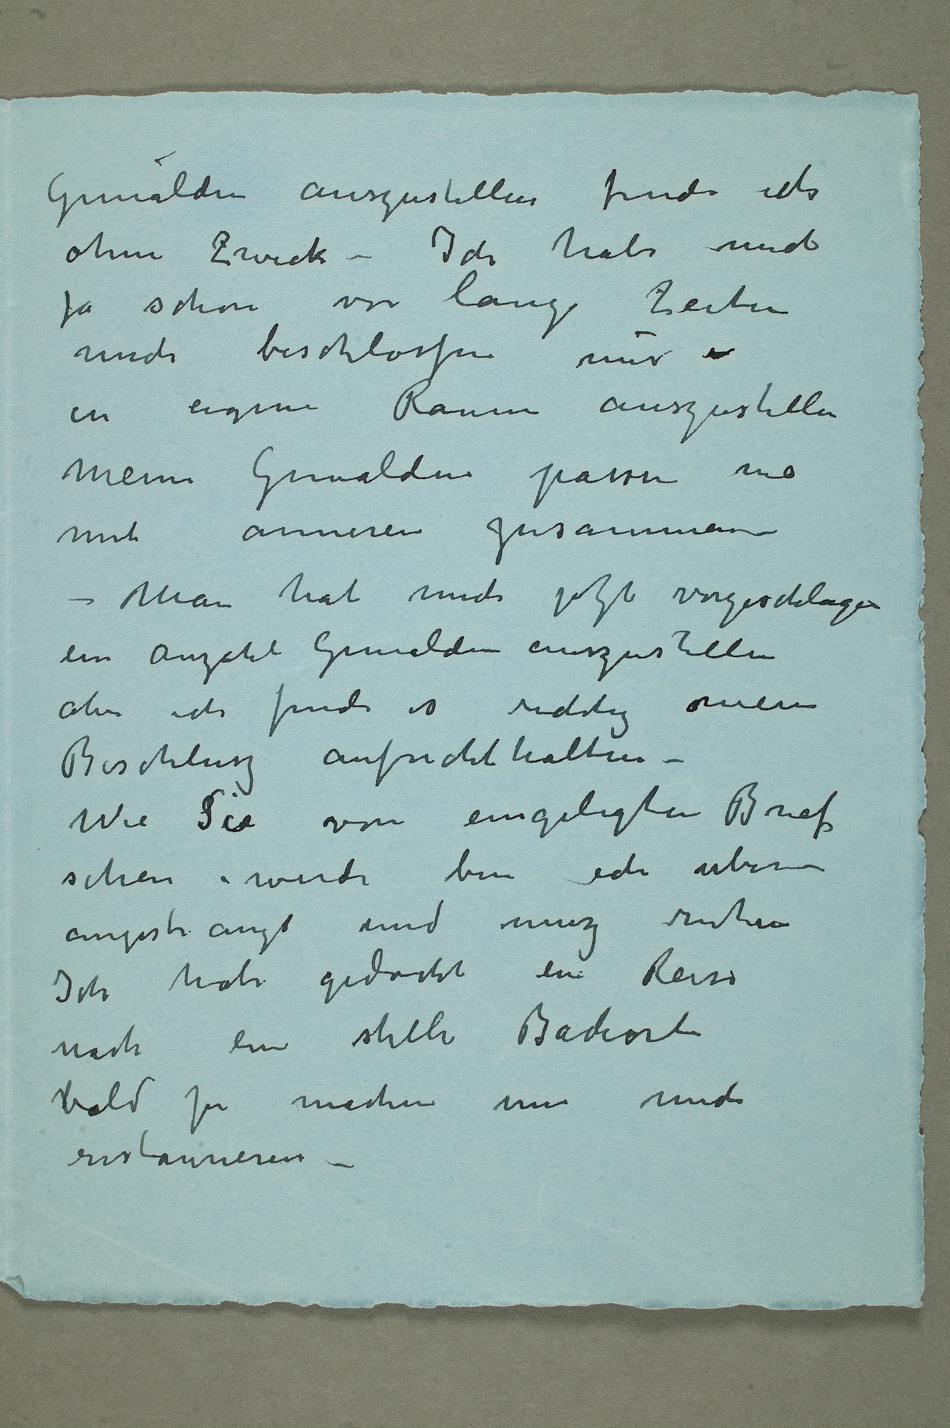 Gemälden auszustellen finde ich
ohne Zweck – Ich habe mich
ja schon vor lange Zeiten
mich beschlossen nur
in eigene Raume auszustellen
Meine Gemalden passen nie
mit anneren zusammen
– Man hat mich jetzt vorgeschlagen
ein Anzahl Gemalden auszustellen
aber ich finde es richtig meine
Beschlusz aufrechthalten –
Wie Sie von eingelegten Brief
sehen werde bin ich uber
angestrangt und musz ruhen
Ich habe gedacht ein Reise
nach ein stille Badeorte
bald zu machen um mich
restaurieren –